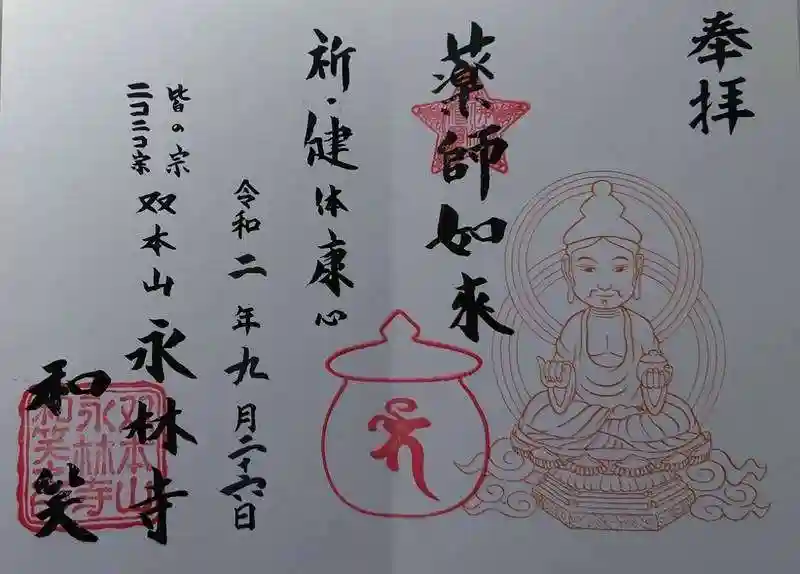 奉拝
薬師如來
祈・健体康心
令和二年九月二十六日
皆の宗
ニコニコ宗
双本山永林寺
和笑
双本山
永林寺
和笑